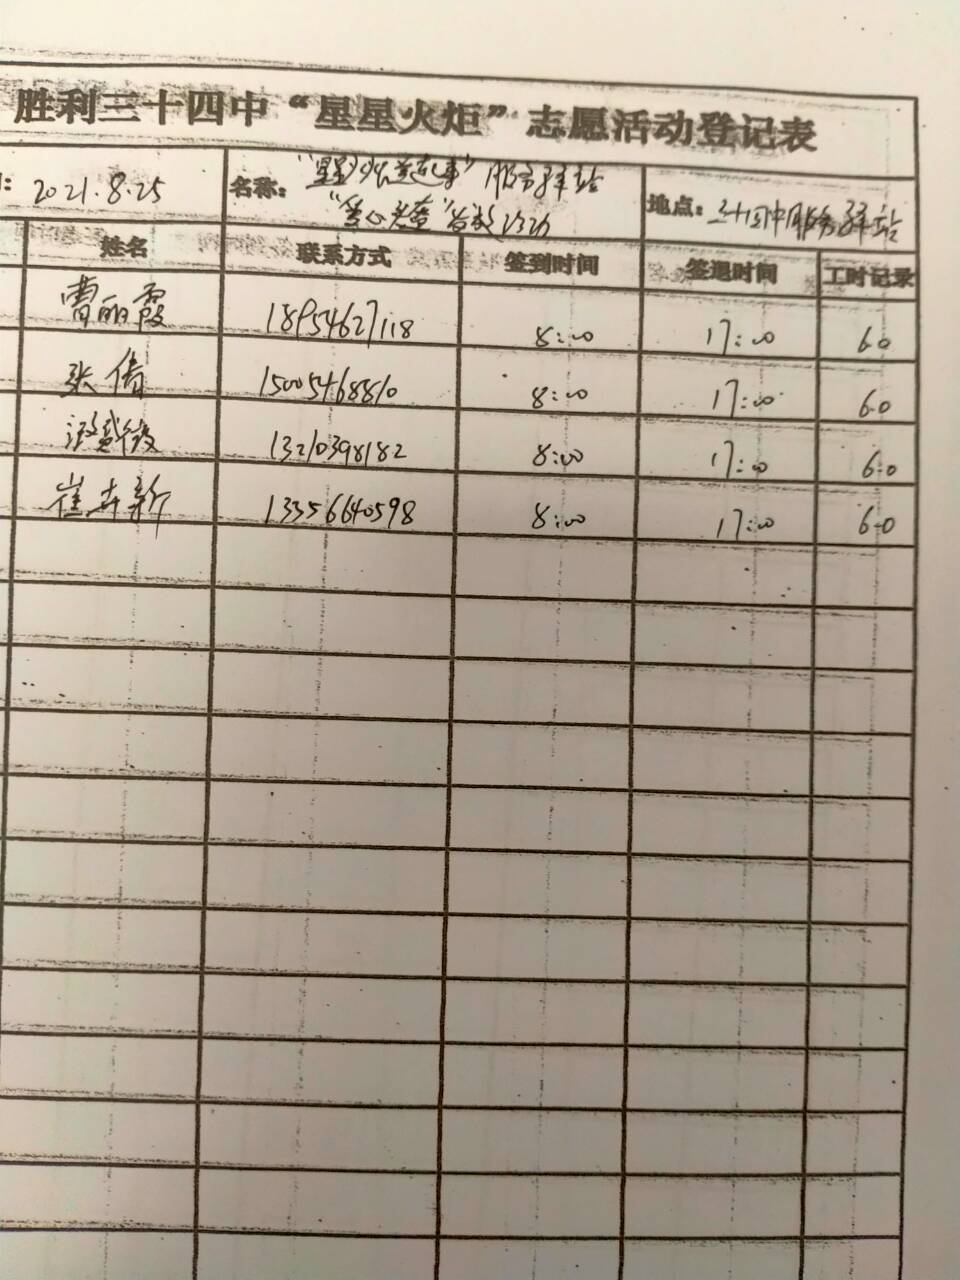 胜利三十四中“星星火炬”志愿活动登记表
: 2021.8.25 名称: 服务驿站 地点: 三十四中服务驿站
姓名 联系方式 签到时间 签退时间 工时记录
曹丽霞 18954627118 8:00 17:00 6.0
张倩 15005468810 8:00 17:00 6.0
13210398182 8:00 17:00 6.0
崔卉新 13356640598 8:00 17:00 6.0